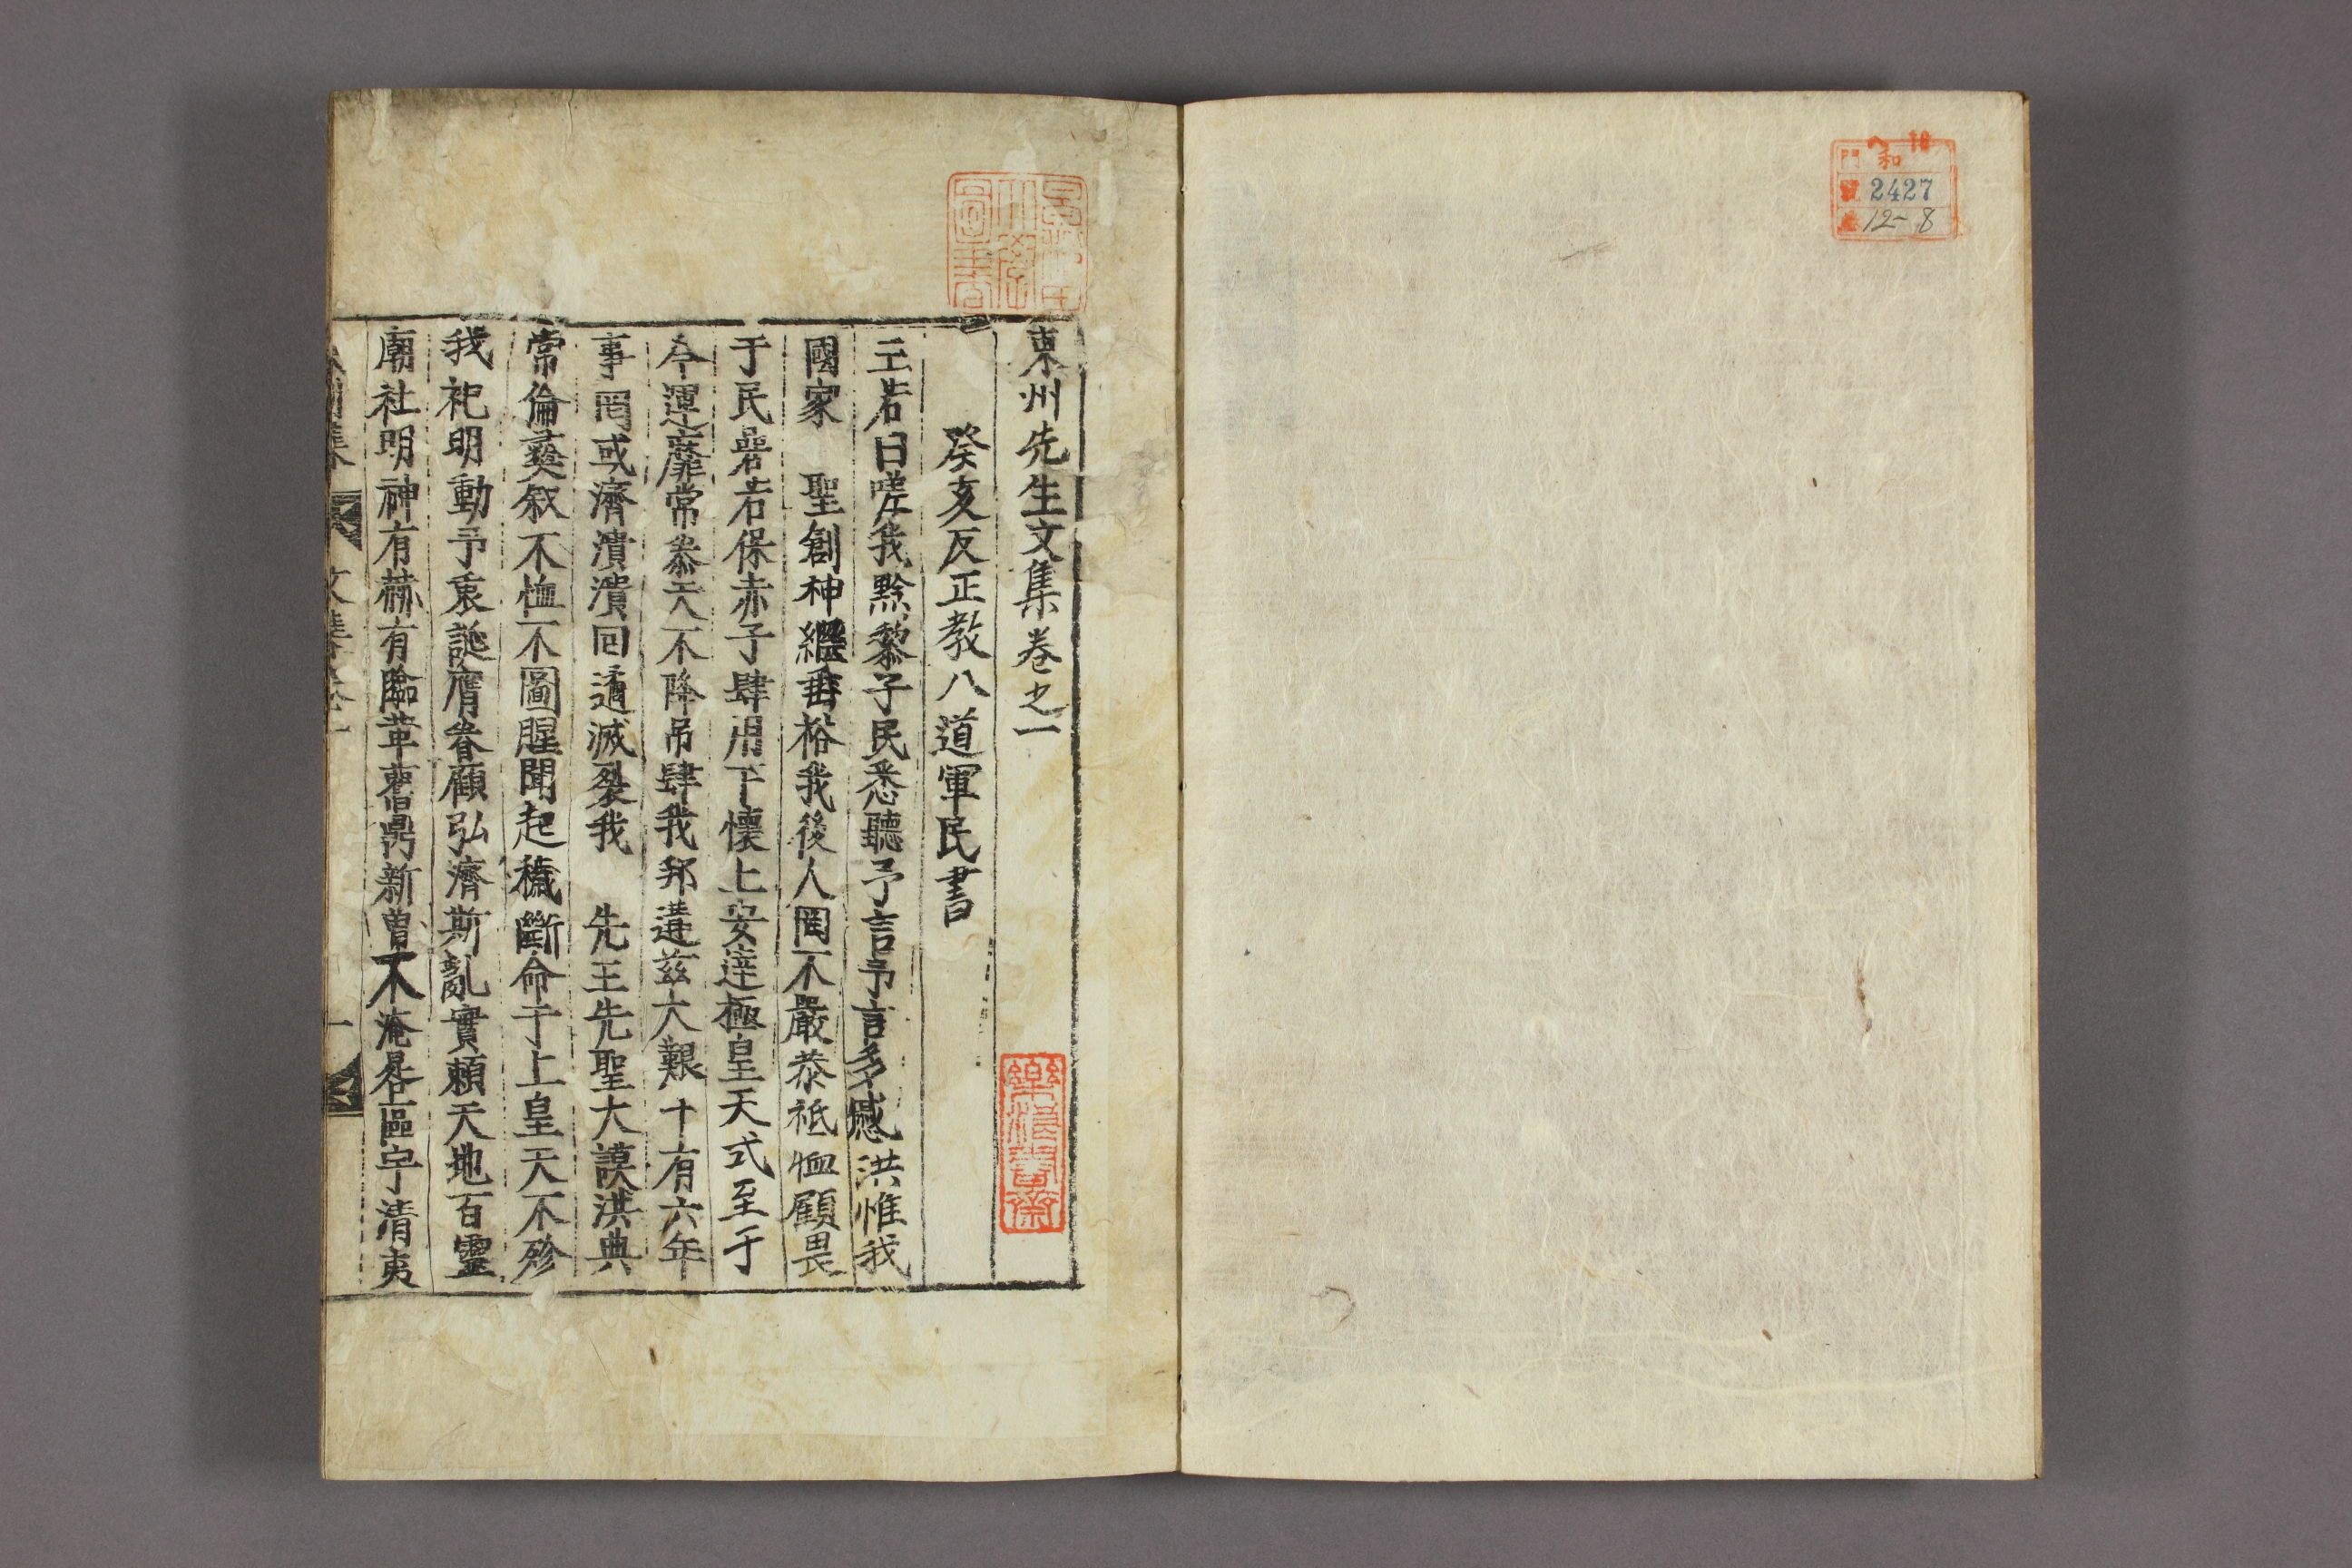 和
2427
12-8
東州先生文集卷之一
癸亥反正教八道軍民書
王若曰嗟我黔黎子民悉聽予言予言多慼洪惟我
國家　聖創神繼垂裕我後人罔不嚴恭祗恤顧畏
于民碞若保赤子肆用下懷上安逹極皇天式至于
今運之靡常叅天不降吊肆我邦遘茲大艱十有六年
事罔或濟潰潰回遹滅裂我　先王先聖大謨洪典
常倫彝叙不恤不圖腥聞起穢斷命于上皇天不殄
我祀明動予衷誕膺眷顧弘濟斯亂實頼天地百靈
廟社明神有赫有臨革舊鼎新曾不淹晷區宇清夷